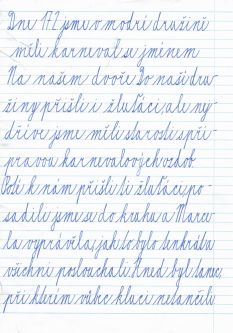 Dne 17.2 jsme v modré družině
měli karneval se jménem
Na našem dvoře. Do naší dru
žiny přišli i žluťáci, ale nej
dříve jsme měli starosti s pří
pravou karnevalových ozdob.
Poté k nám přišli ti žluťáci, po-
sadili jsme se do kruhu a Marce
la vyprávěla, jak to bylo tenkrát a
všichni poslouchali. Hned byl tanec,
při kterém vůbec kluci netančili